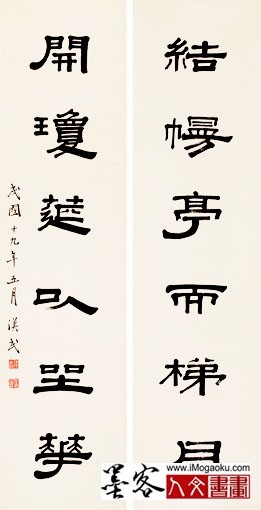 結幔亭而梯月
開瓊筵以坐華
民國十九年五月 漢民
墨客
www.iMogaoku.com
人文書畫